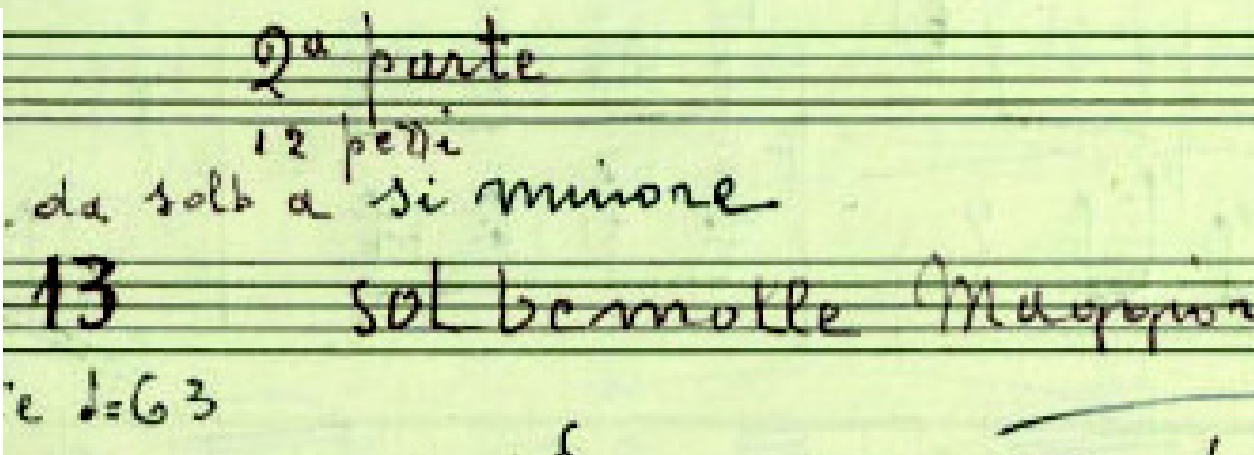 2ª parte
12 pezzi
da solb a si minore
13 sol bemolle Maggior
e ♩=63